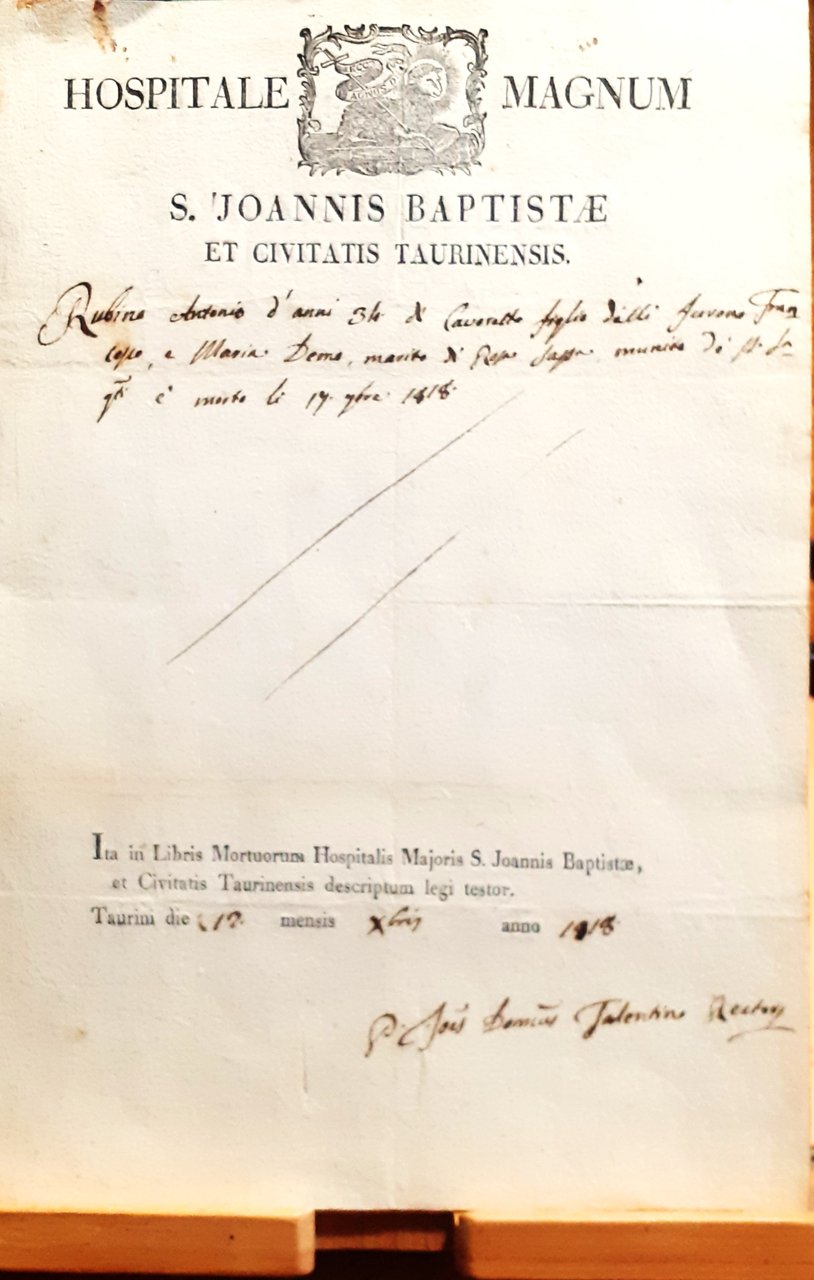 HOSPITALE MAGNUM
ECCE
AGNUS D
S. JOANNIS BAPTISTÆ
ET CIVITATIS TAURINENSIS.
Rubino Antonio d'anni di Cavoretto figlio delli Fran
cesco, e Maria Demo, marito di munito de'
è morto li 17. 9bre 1818.
Ita in Libris Mortuorum Hospitalis Majoris S. Joannis Baptistæ,
et Civitatis Taurinensis descriptum legi testor.
Taurini die mensis Xbris anno 1818
P. Talentino Rector